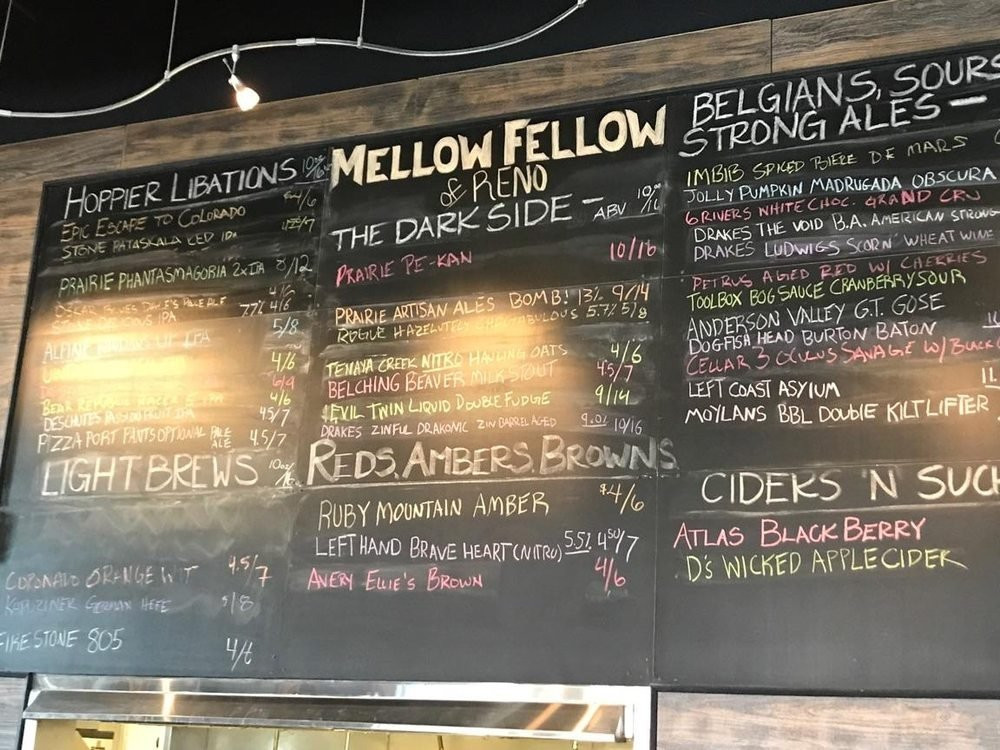 HOPPIER LIBATIONS
EPIC ESCAPE TO COLORADO $4/6
STONE PATASKALA RED IPA
PRAIRIE PHANTASMAGORIA 2X IPA 8/12
4/6
OSCAR BLUES DALE'S PALE ALE
IPA 7.7% 4/6
ALPINE IPA 5/8
4/6
6/9
BEAR 4/6
DESCHUTES PASSIONFRUIT IPA 4.5/7
PIZZA PORT PANTS OPTIONAL PALE ALE 4.5/7
LIGHT BREWS
CORONADO ORANGE WIT 4.5/7
GERMAN HEFE 5/8
FIRESTONE 805 4/6
MELLOW FELLOW
& RENO
THE DARK SIDE - ABV
PRAIRIE PE-KAN 10/16
PRAIRIE ARTISAN ALES BOMB! 13% 9/14
ROGUE HAZELUTELY 5.7% 5/8
TENAYA CREEK NITRO HAULING OATS 4/6
BELCHING BEAVER MILK STOUT 4.5/7
EVIL TWIN LIQUID DOUBLE FUDGE 9/14
DRAKES ZINFUL DRAKONIC ZIN BARREL AGED 10/16
REDS, AMBERS, BROWNS
RUBY MOUNTAIN AMBER $4/6
LEFT HAND BRAVE HEART (NITRO) 5.5% 4.50/7
AVERY ELLIE'S BROWN 4/6
BELGIANS, SOURS
STRONG ALES -
IMBIB SPICED BIERE DE MARS
JOLLY PUMPKIN MADRUGADA OBSCURA
6 RIVERS WHITE CHOC. GRAND CRU
DRAKES THE VOID B.A. AMERICAN STRONG
DRAKES LUDWIGS SCORN WHEAT WINE
PETRUS AGED RED W/ CHERRIES
TOOLBOX BOG SAUCE CRANBERRY SOUR
ANDERSON VALLEY G.T. GOSE
DOGFISH HEAD BURTON BATON
CELLAR 3 OCULUS SAVAGE W/
LEFT COAST ASYLUM
MOYLANS BBL DOUBLE KILTLIFTER
CIDERS 'N SUCH
ATLAS BLACKBERRY
D'S WICKED APPLE CIDER